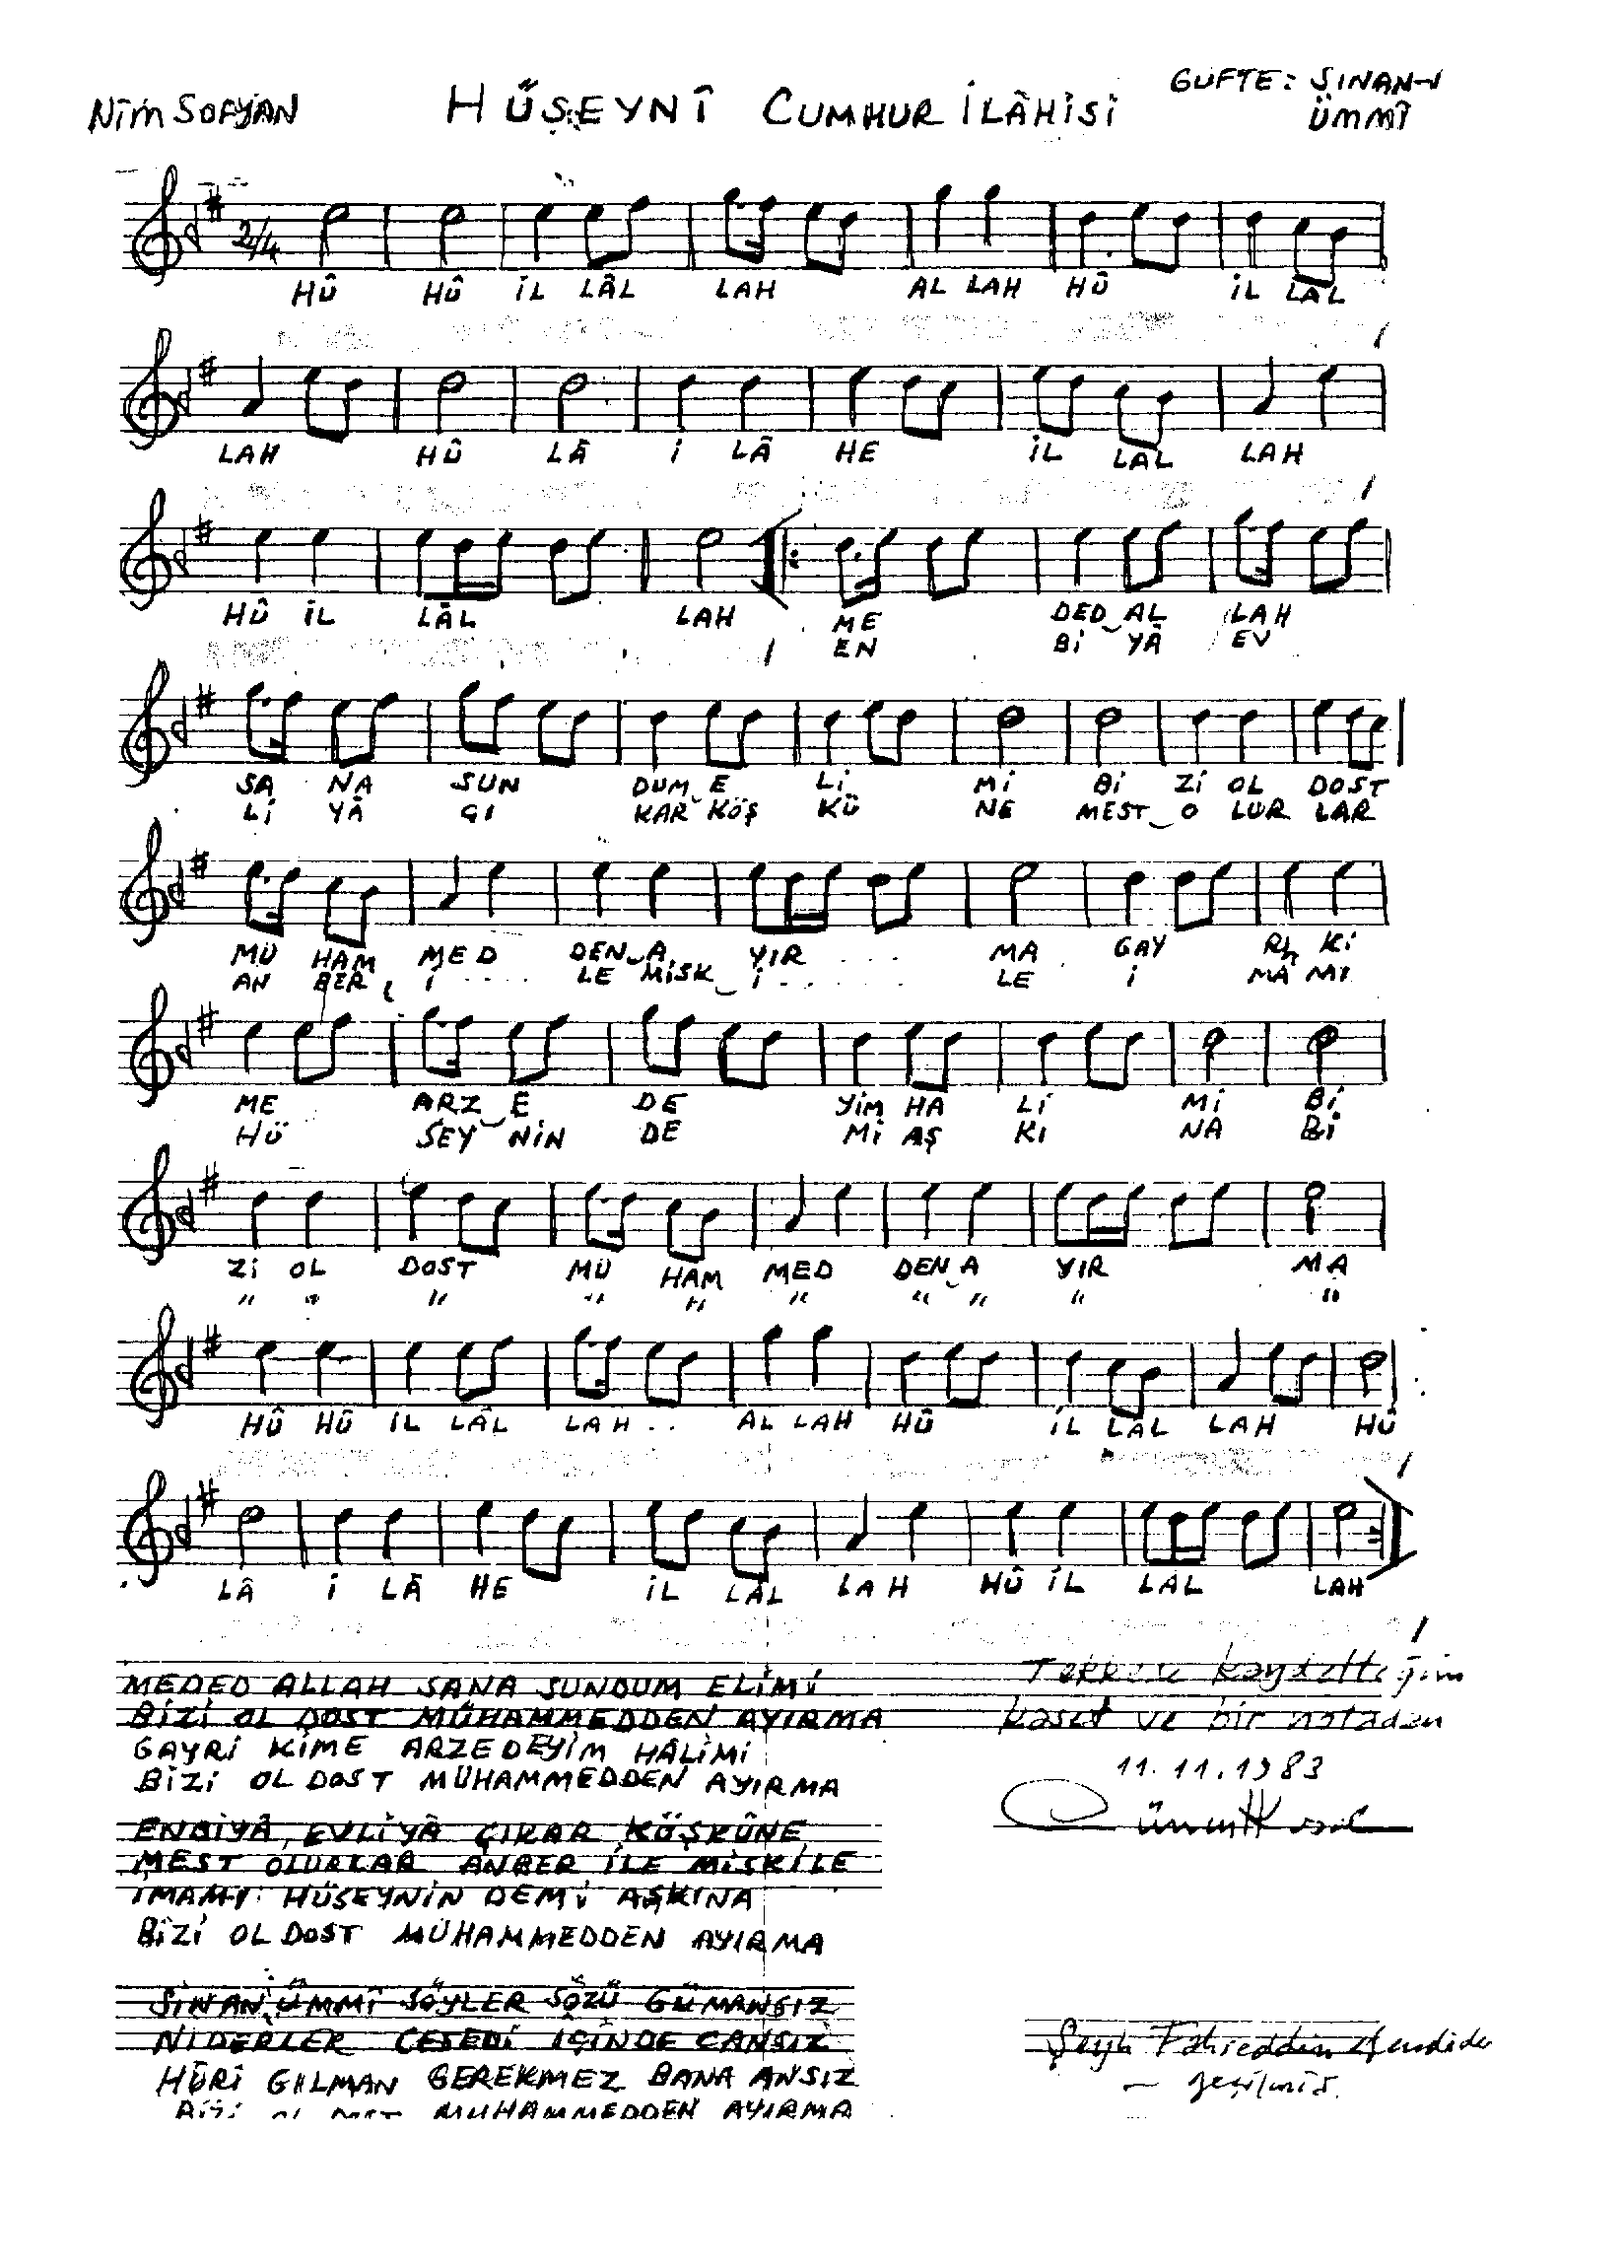 NİM SOFYAN
HÜSEYNÎ CUMHUR İLÂHİSİ
GÜFTE: SİNAN-I
ÜMMÎ
2/4
HÛ HÛ İL LÂL LAH AL LAH HÛ İL LÂL
LAH HÛ LÂ İ LÂ HE İL LÂL LAH
HÛ İL LÂL LAH ME DED AL LAH
EN Bİ YÂ EV
SA NA SUN DUM E Lİ Mİ Bİ Zİ OL DOST
Lİ YÂ ÇI KAR KÖŞ KÜ NE MEST O LUR LAR
MU HAM MED DEN A YIR ... MA GAY Rİ Kİ
AN BER İ .... LE MİSK İ ..... LE İ MA MI
ME ARZ E DE YİM HA Lİ Mİ Bİ
HÜ SEY NİN DE Mİ AŞ KI NA Bİ
Zİ OL DOST MU HAM MED DEN A YIR MA
" " " " " " " " " "
HÛ HÛ İL LÂL LAH .. AL LAH HÛ İL LÂL LAH HÛ
LÂ İ LÂ HE İL LÂL LAH HÛ İL LÂL LAH
MEDED ALLAH SANA SUNDUM ELİMİ
BİZİ OL DOST MUHAMMEDDEN AYIRMA
GAYRİ KİME ARZEDEYİM HÂLİMİ
BİZİ OL DOST MUHAMMEDDEN AYIRMA
ENBİYÂ, EVLİYÂ ÇIKAR KÖŞKÜNE
MEST OLURLAR ANBER İLE MİSKİLE
İMAM-I HÜSEYNİN DEMİ AŞKINA
BİZİ OL DOST MUHAMMEDDEN AYIRMA
SİNAN ÜMMÎ SÖYLER SÖZÜ GÜMANSIZ
NİDERLER CESEDİ İÇİNDE CANSIZ
HÛRİ GILMAN GEREKMEZ BANA ANSIZ
BİZİ OL DOST MUHAMMEDDEN AYIRMA
kaydettiğim
kaset ve bir notadan
11.11.1983
Şeyh Fahreddin Efendiden
— geçilmiş.